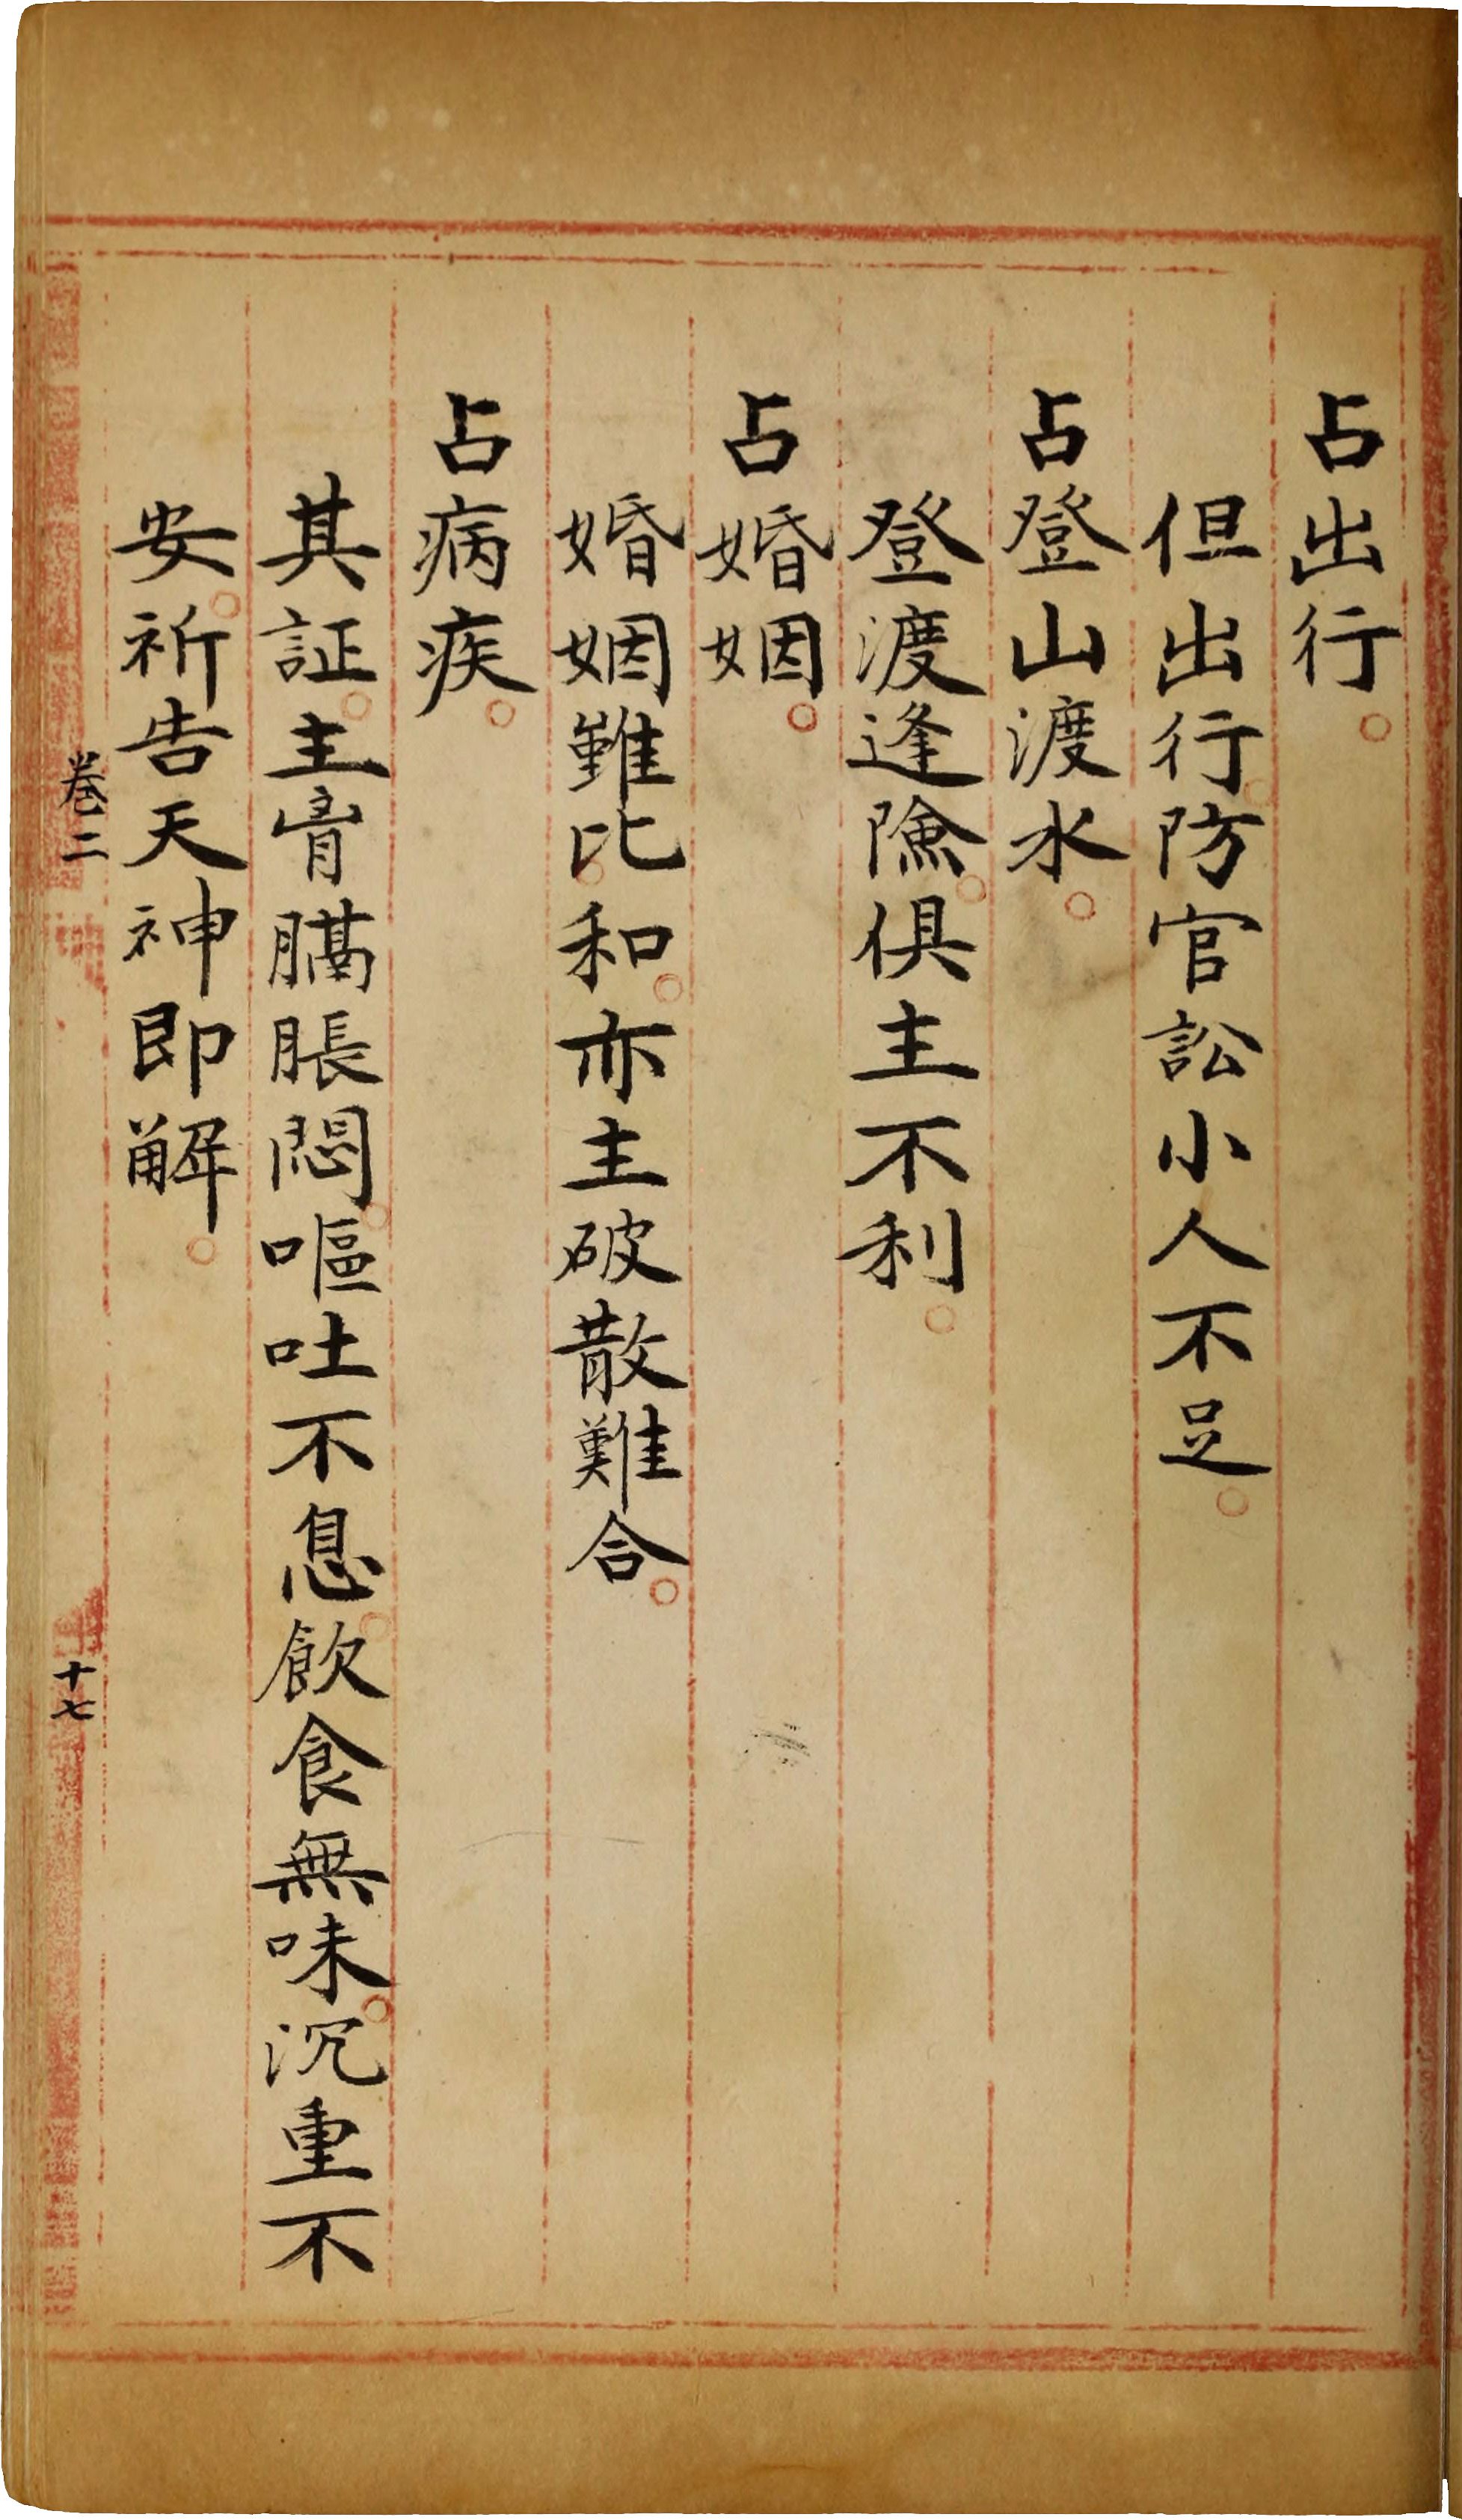 占出行。
但出行。防官訟小人不足。
占登山渡水。
登渡逢險。俱主不利。
占婚姻。
婚姻雖比和。亦主破散難合。
占病疾。
其証。主胷膈脹悶。嘔吐不息。飲食無味。沉重不
安。祈告天神即解。
卷二
十七